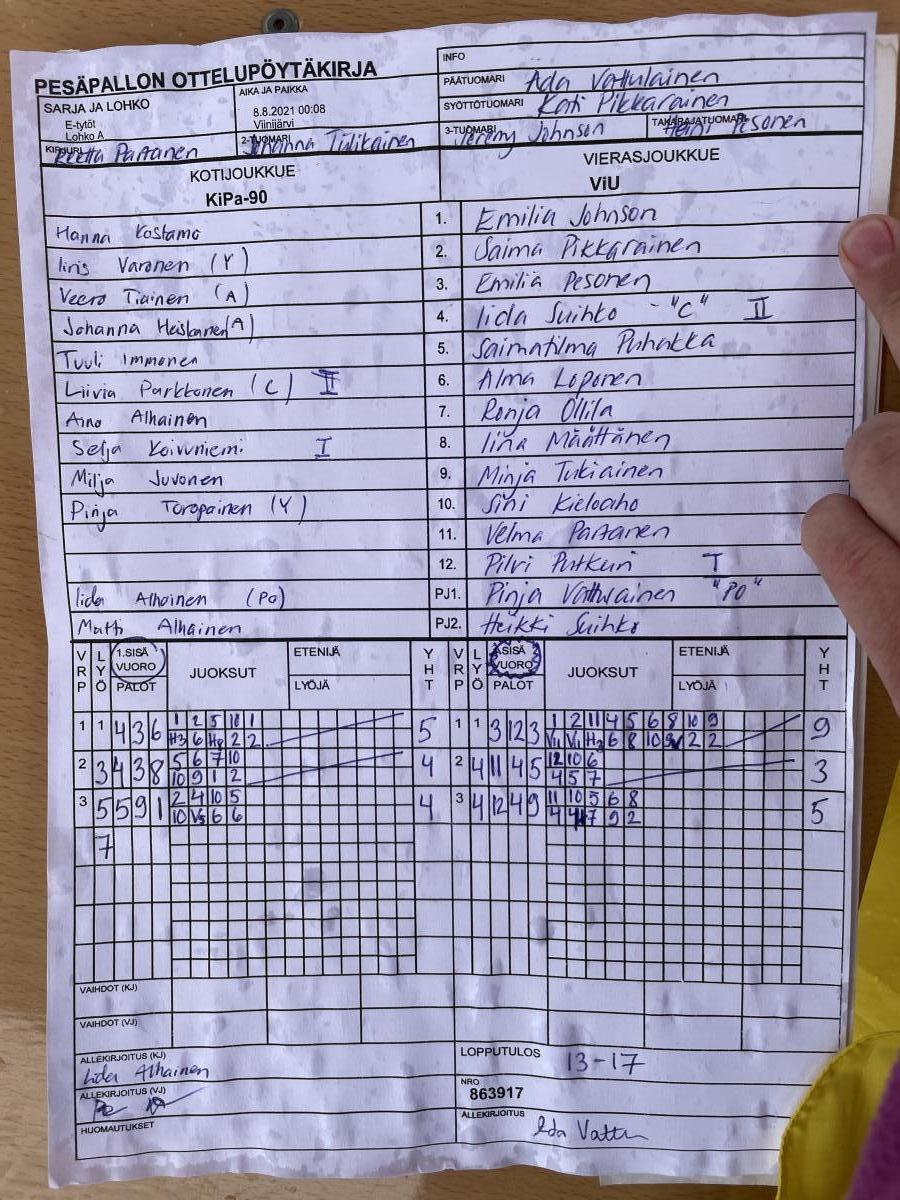 PESÄPALLON OTTELUPÖYTÄKIRJA
INFO
PÄÄTUOMARI Ada Vattulainen
SYÖTTÖTUOMARI Kati Pikkarainen
3-TUOMARI Jeremy Johnson TAKARAJATUOMARI Heini Pesonen
SARJA JA LOHKO
E-tytöt
Lohko A
AIKA JA PAIKKA
8.8.2021 00:08
Viinijärvi
KIRJURI Reetta Partanen 2-TUOMARI Johanna Tulikainen
KOTIJOUKKUE
KiPa-90
VIERASJOUKKUE
ViU
Hanna Kostamo 1. Emilia Johnson
Iiris Varonen (Y) 2. Saima Pikkarainen
Veera Tiainen (A) 3. Emilia Pesonen
Johanna Heiskanen (A) 4. Iida Suihko - "C" II
Tuuli Immonen 5. Saimatilma Puhakka
Liivia Parkkonen (C) II 6. Alma Loponen
Aino Alhainen 7. Ronja Ollila
Selja Koivuniemi I 8. Iina Määttänen
Milja Juvonen 9. Minja Tukiainen
Pinja Toropainen (Y) 10. Sini Kieloaho
11. Velma Partanen
12. Pilvi Putkuri I
Iida Alhainen (PO) PJ1. Pinja Vattulainen "PO"
Matti Alhainen PJ2. Heikki Suihko
VRP LYÖ 1.SISÄ VUORO PALOT JUOKSUT ETENIJÄ LYÖJÄ YHT VRP LYÖ SISÄ VUORO PALOT JUOKSUT ETENIJÄ LYÖJÄ YHT
1 1 4 3 6 1 2 5 10 1 5 1 1 3 12 3 1 2 11 4 5 6 8 10 9 9
H3 6 H8 2 2 V11 V1 H3 6 8 10 2 2
2 3 4 3 8 5 6 7 10 4 2 4 11 4 5 12 10 6 3
10 9 1 2 4 5 7
3 5 5 9 1 2 4 10 5 4 3 4 12 4 9 11 10 5 6 8 5
10 V5 6 6 4 7 9 2
7
VAIHDOT (KJ)
VAIHDOT (VJ)
ALLEKIRJOITUS (KJ)
Iida Alhainen
LOPPUTULOS 13-17
ALLEKIRJOITUS (VJ)
NRO
863917
HUOMAUTUKSET
ALLEKIRJOITUS
Ada Vattu